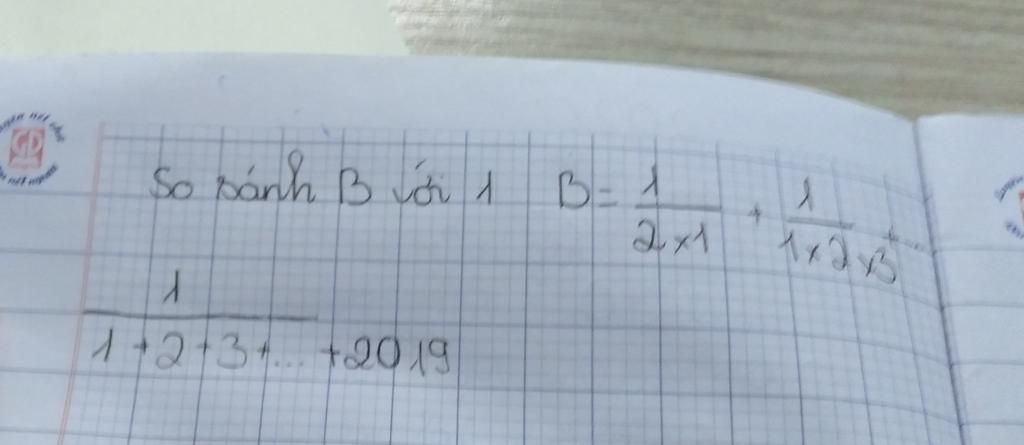 So sánh B với 1 B = 1/(2×1) + 1/(1×2×3) + ...
1/(1+2+3+...+2019)